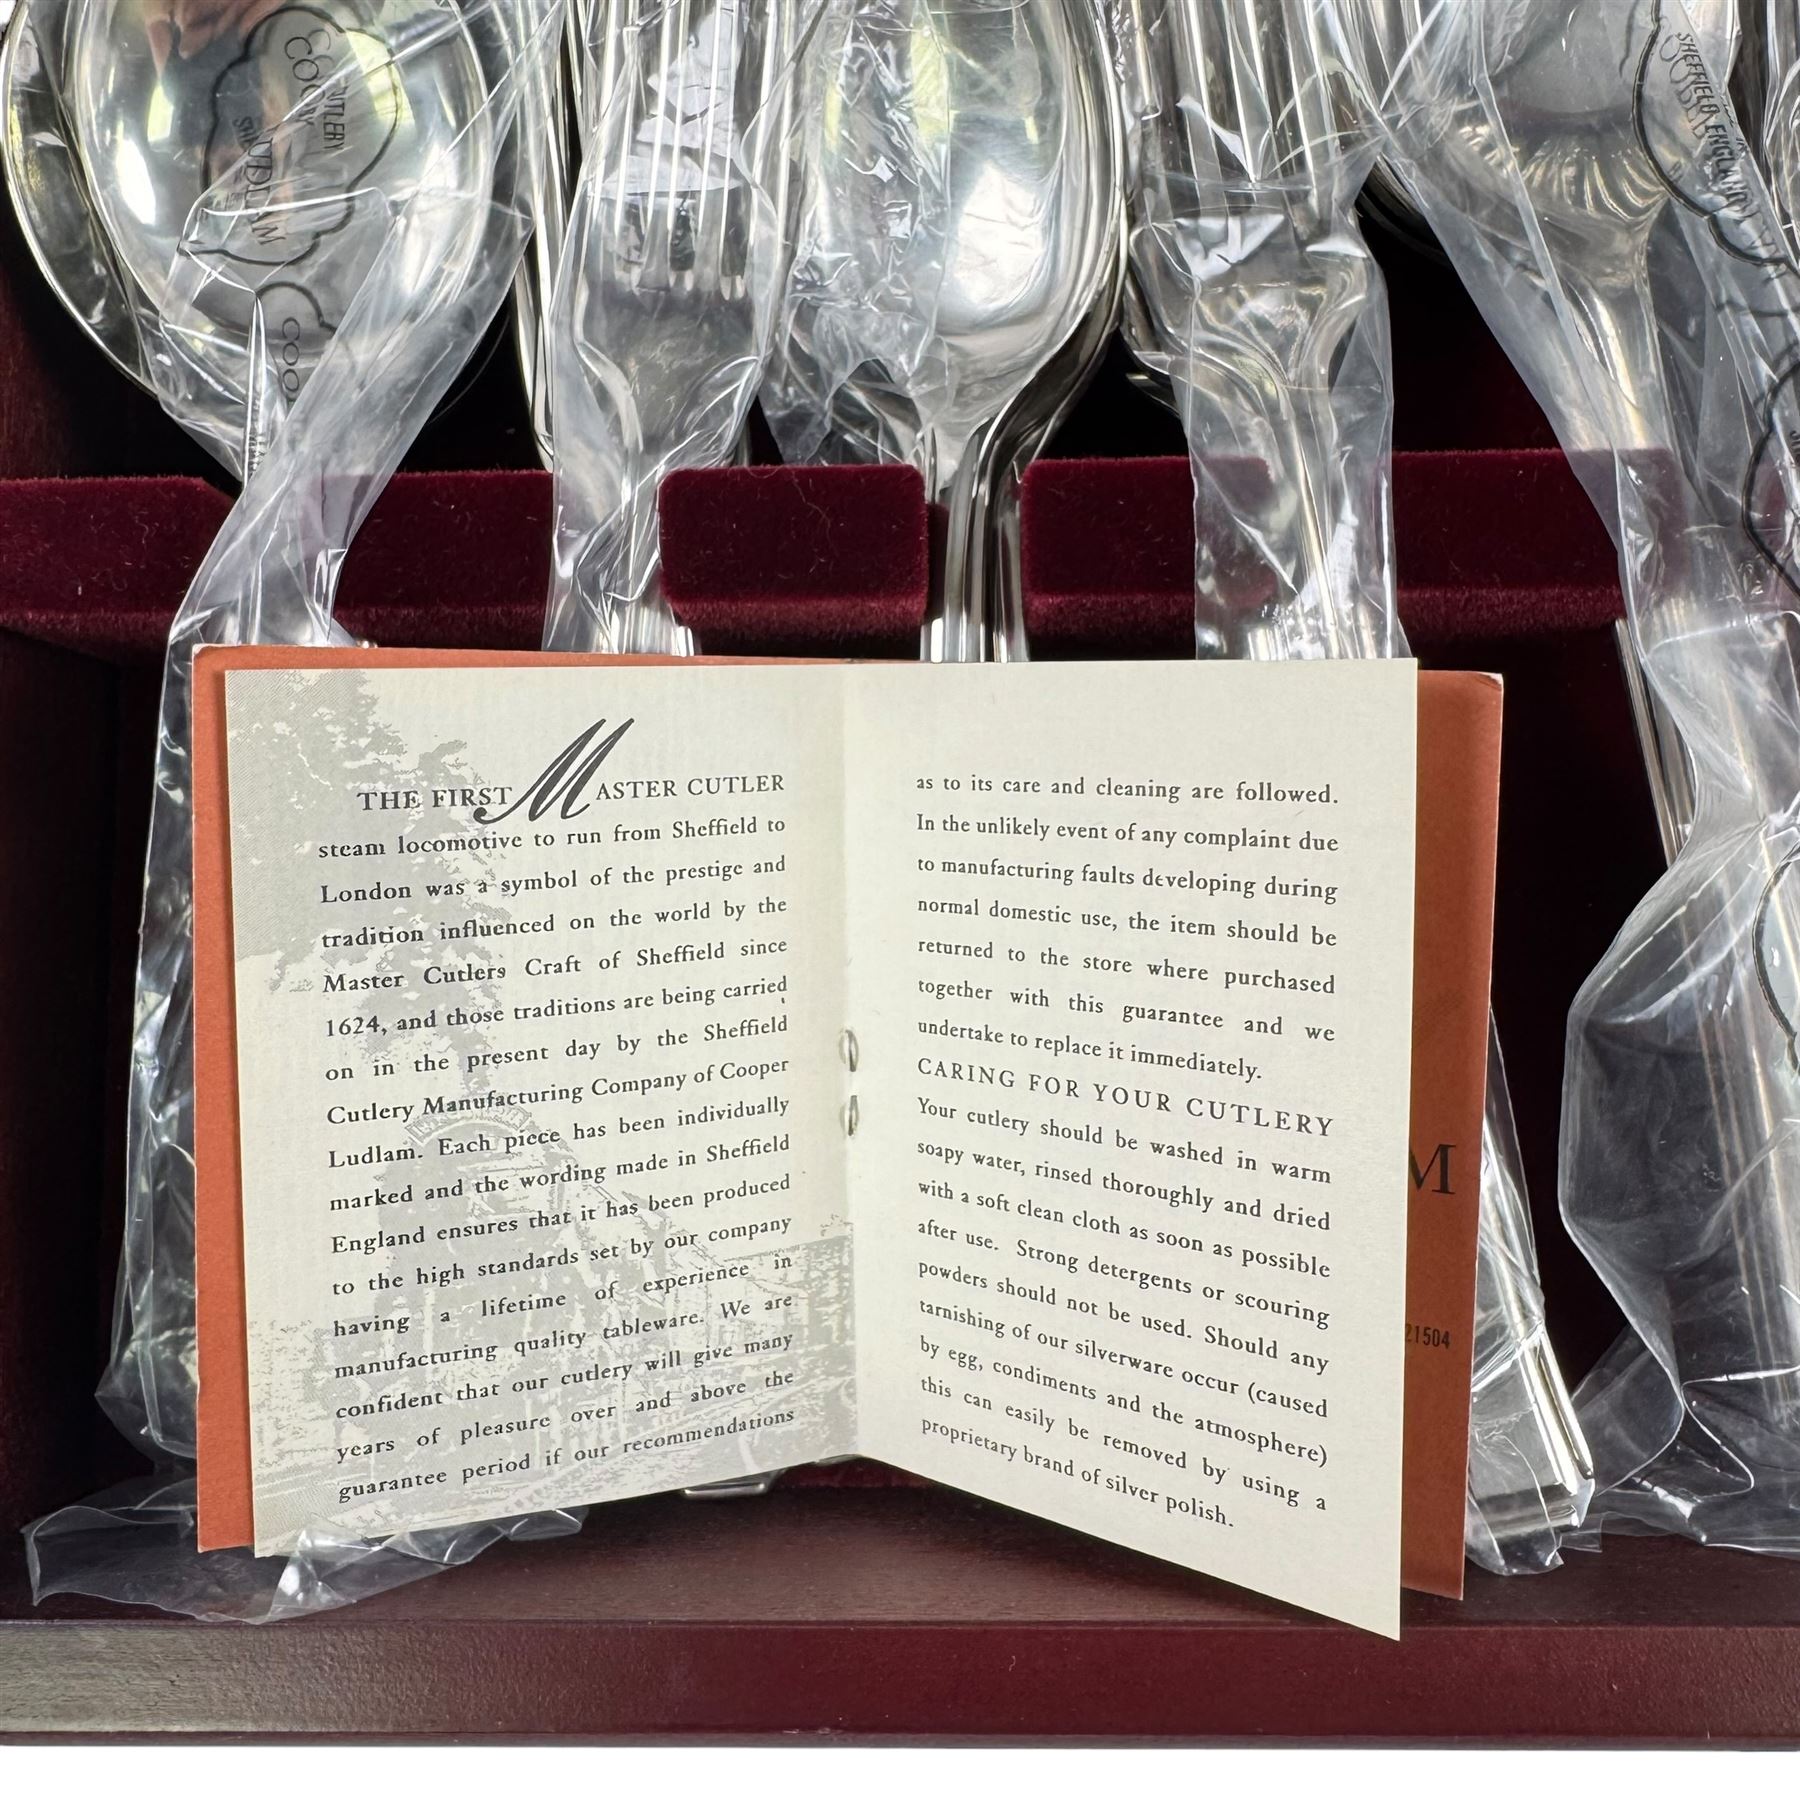 COOPER
CUTLERY
LUDLAM
COO
SHEFFIELD, ENGLAND
THE FIRST MASTER CUTLER
steam locomotive to run from Sheffield to
London was a symbol of the prestige and
tradition influenced on the world by the
Master Cutlers Craft of Sheffield since
1624, and those traditions are being carried
on in the present day by the Sheffield
Cutlery Manufacturing Company of Cooper
Ludlam. Each piece has been individually
marked and the wording made in Sheffield
England ensures that it has been produced
to the high standards set by our company
having a lifetime of experience in
manufacturing quality tableware. We are
confident that our cutlery will give many
years of pleasure over and above the
guarantee period if our recommendations
as to its care and cleaning are followed.
In the unlikely event of any complaint due
to manufacturing faults developing during
normal domestic use, the item should be
returned to the store where purchased
together with this guarantee and we
undertake to replace it immediately.
CARING FOR YOUR CUTLERY
Your cutlery should be washed in warm
soapy water, rinsed thoroughly and dried
with a soft clean cloth as soon as possible
after use. Strong detergents or scouring
powders should not be used. Should any
tarnishing of our silverware occur (caused
by egg, condiments and the atmosphere)
this can easily be removed by using a
proprietary brand of silver polish.
M
21504